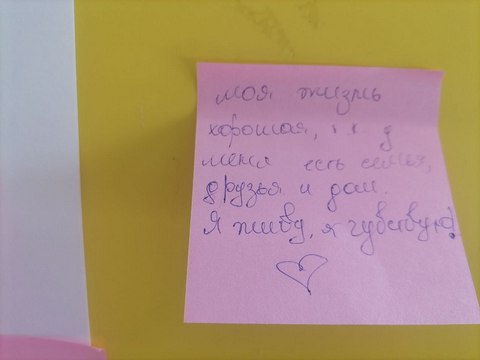 Моя жизнь
хорошая, т к у
меня есть семья,
друзья и дом.
Я живу, я чувствую!